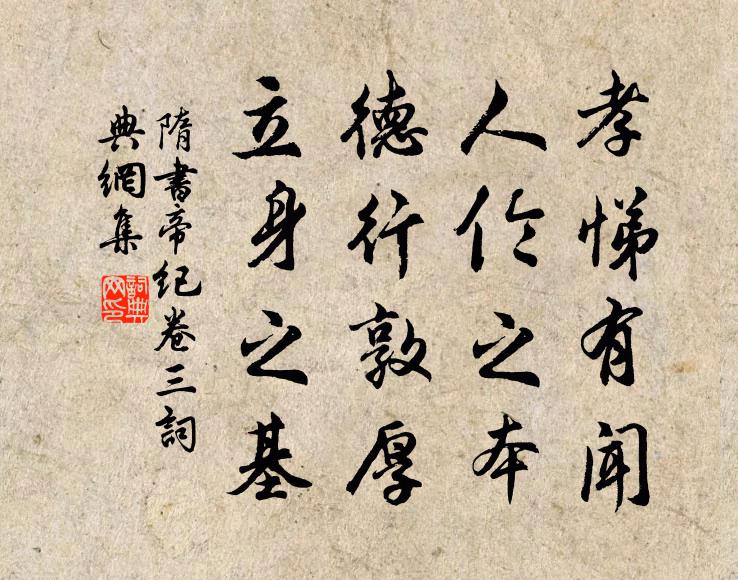 孝悌有闻
人伦之本
德行敦厚
立身之基
隋書帝紀卷三詞
典網集
詞典
网印